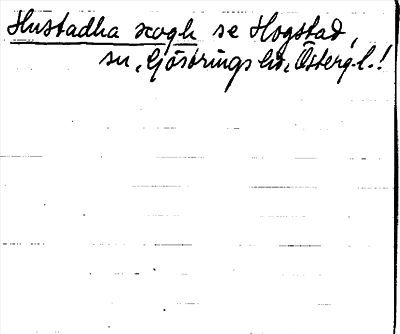 Hustadha scogh se Hogstad,
sn, Göstrings hd, Östergl.!